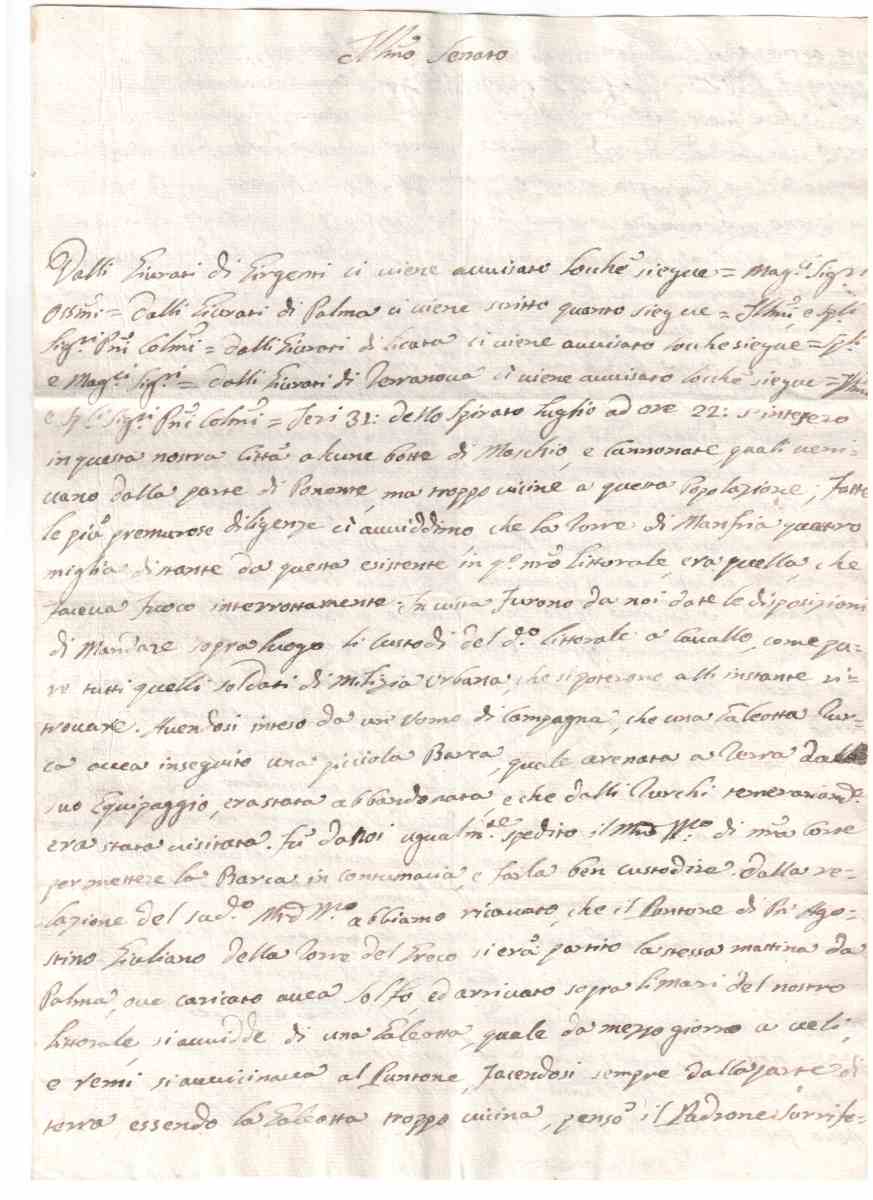 Ill.mo Senato
Dalli Giurati di Girgenti ci viene avvisato locche siegue = Mag.ci Sig.ri
Oss.mi = dalli Giurati di Palma ci viene scritto quanto siegue = Ill.mi, e Sp.li
Sig.ri P.ni Col.mi = dalli Giurati di licata ci viene avvisato locche siegue = Sp.li
e Mag.ci Sig.ri = dalli Giurati di Terranova ci viene avvisato locche siegue = Ill.mi
e Sp.li Sig.ri P.ni Col.mi = Jeri 31: dello spirato luglio ad ore 22: s'intesero
in questa nostra Città alcune botte di Moschio, e Cannonate quali veni-
vano dalla parte di Ponente, ma troppo vicine a questa Popolazione; Fatte
le più premurose diligenze ci avviddimo che la Torre di Manfria quattro
miglia distante da questa esistente in q.o n.ro littorale, era quella, che
faceva fuoco interrottamente. In vista furono da noi date le disposizioni
di Mandare sopra luogo li Custodi del d.o littorale a Cavallo, come pu-
re tutti quelli soldati di Milizia Urbana, che si poterono all'instante ri-
trovare. Avendosi inteso da un Uomo di Campagna, che una Galeotta Tur-
ca avea inseguito una picciola Barca, quale arenata a Terra dall
suo Equipaggio, era stata abbandonata, e che dalli Turchi temerariam.e
era stata visitata. Fu da noi ugualm.te spedito il di n.ra Corte
per mettere la Barca in contumacia, e farla ben custodire. dalla re-
lazione del sud.o abbiamo ricavato, che il Pontone di P.n Ago-
stino Giuliano della Torre del Greco si era partito la stessa mattina da
Palma, ove caricato avea Solfo, ed arrivato sopra li mari del nostro
littorale, si avvidde di una Galeotta, quale da mezzo giorno a veli,
e remi si avvicinava al Puntone, facendosi sempre dalla parte di
terra essendo la Galeotta troppo vicina, pensò il Padrone surrife-